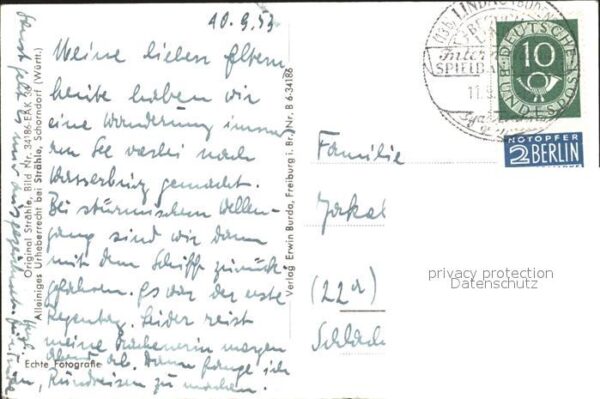 10.9.53
Meine lieben Eltern
heute haben wir
eine Wanderung immer
am See vorbei nach
Wasserburg gemacht.
Bei stürmischem Wellen-
gang sind wir dann
mit dem Schiff zurück-
gefahren. Es war der erste
Regentag. Leider reist
meine morgen
abend ab. Dann fange ich
an, Rundreisen zu machen.
Sonst geht es mir ausgezeichnet.
Original Strähle, Bild Nr. 34186-EAK
Alleiniges Urheberrecht bei Strähle, Schorndorf (Württ.)
Echte Fotografie
Verlag Erwin Burda, Freiburg i. Br., Nr. B 6-34186
LINDAU (BOD
SPIELBA
11.9.
10
DEUTSCHE
BUNDESPOST
NOTOPFER
2 BERLIN
Familie
(22a)
privacy protection
Datenschutz